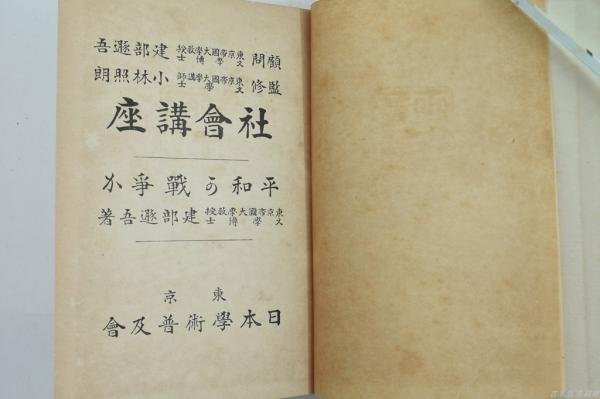 顧問 東京帝國大學教授 文學博士 建部遯吾
監修 東京帝國大學講師 文學士 小林照朗
社會講座
平和か戰爭か
東京帝國大學教授 文學博士 建部遯吾著
東京
日本學術普及會